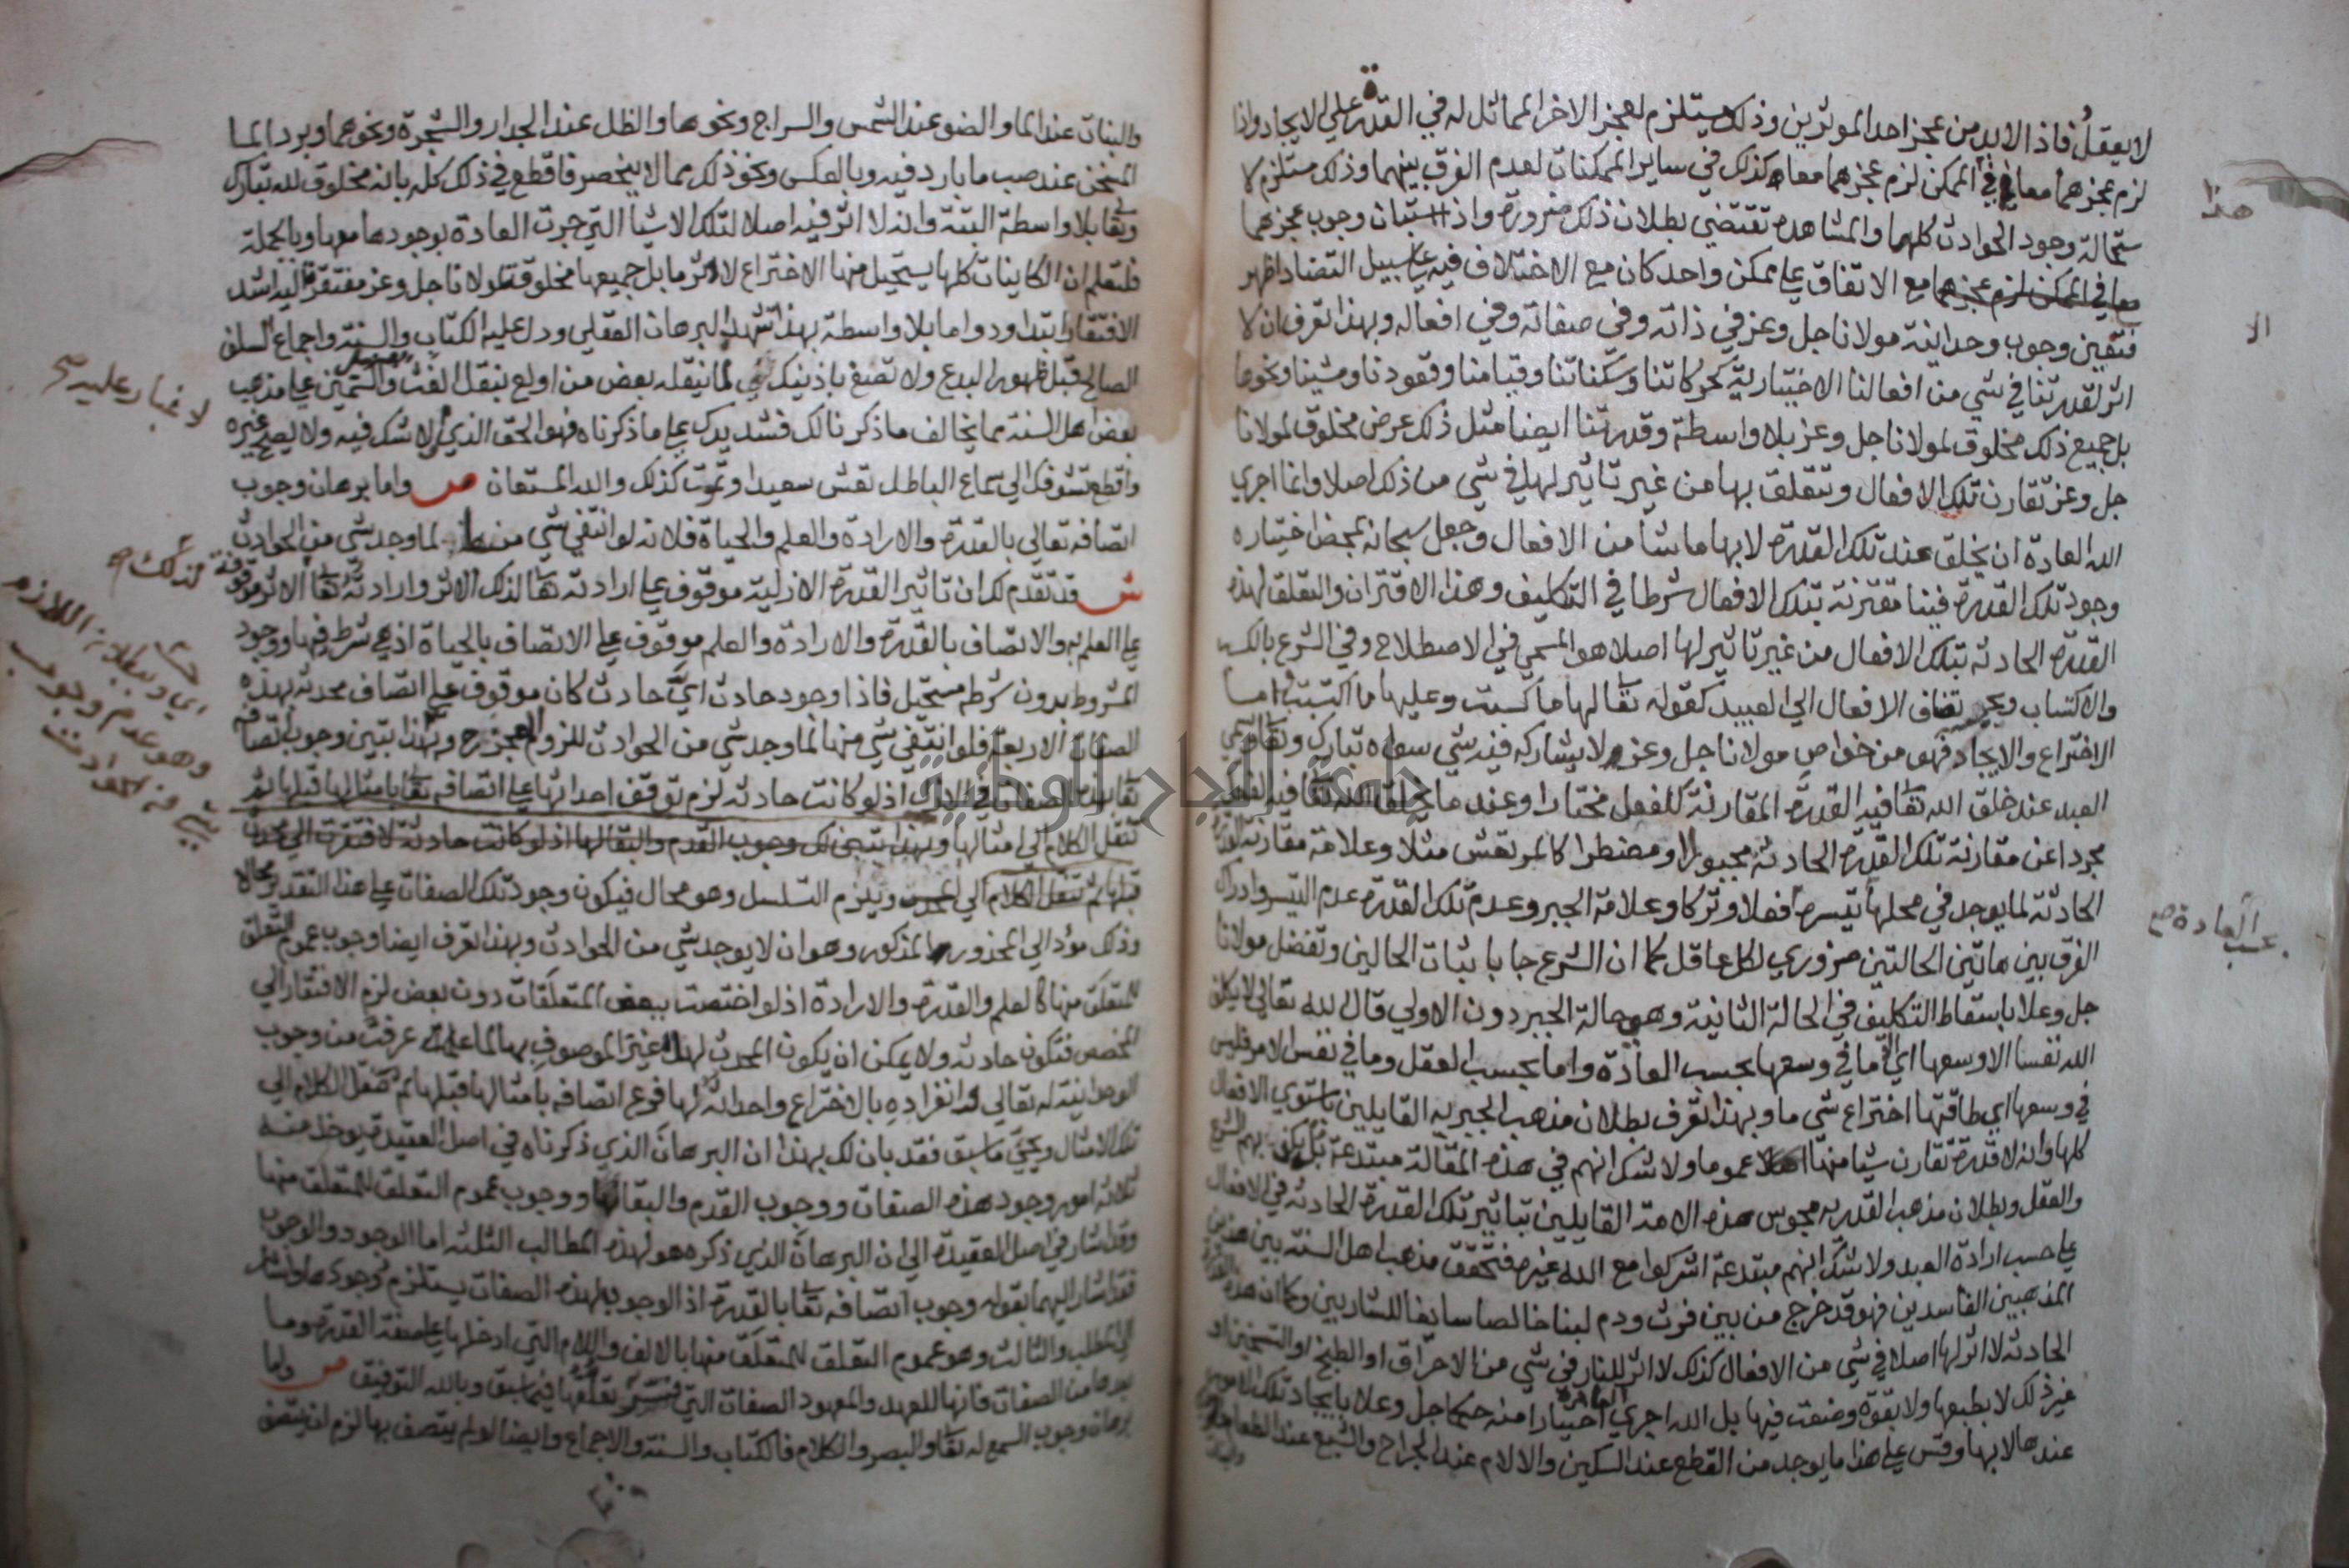 لا يعقل فاذا لابد من عجز احد الموثرين وذلك يستلزم لعجز الاخر المماثل له في القدرة علي الايجاد واذا
لزم عجزهما معا في الممكن لزم عجزهما معا كذلك في ساير الممكنات لعدم الفرق بينهما وذلك مستلزم لا
ستحالة وجود الحوادث كلها والمشاهدة تقتضي بطلان ذلك ضرورة واذا استبان وجوب عجزهما
مع الاتفاق علي ممكن واحد كان مع الاختلاف فيه علي سبيل التضاد اظهر
فتعين وجوب وحدانية مولانا جل وعز في ذاته وفي صفاته وفي افعاله وبهذا تعرف ان لا
اثر لقدرتنا في شي من افعالنا الاختيارية كحركاتنا وسكناتنا وقيامنا وقعودنا ومشينا ونحوها
بل جميع ذلك مخلوق لمولانا جل وعز بلا واسطة وقدرتنا ايضا مثل ذلك عرض مخلوق لمولانا
جل وعز تقارن تلك الافعال وتتعلق بها من غير تاثير لها في شي من ذلك اصلا وانما اجري
الله العادة ان يخلق عند تلك القدرة لا بها ما شا من الافعال وجعل سبحانه بمحض اختياره
وجود تلك القدرة فينا مقترنة بتلك الافعال شرطا في التكليف وهذا الاقتران والتعلق لهذه
القدرة الحادثه بتلك الافعال من غير تاثير لها اصلا هو المسمي في الاصطلاح وفي الشرع بالكسب
والاكتساب وبحسبه تضاف الافعال الي العبيد كقوله تعا لها ما كسبت وعليها ما اكتسبت واما
الاختراع والايجاد فهو من خواص مولانا جل وعز لا يشاركه فيه شي سواه تبارك وتعا ويسمي
العبد عند خلق الله تعا فيه القدرة المقارنة للفعل مختارا وعند ما يخلق الله تعا فيه الفعل
مجردا عن مقارنة تلك القدرة الحادثة مجبورا ومضطرا كالمرتعش مثلا وعلامة مقارنة القدرة
الحادثة لما يوجد في محلها تيسره فعلا وتركا وعلامة الجبر وعدم تلك القدرة عدم التيسر وادراك
الفرق بين هاتين الحالتين ضروري لكل عاقل كما ان الشرع جا باثبات الحالين وتفضل مولانا
جل وعلا باسقاط التكليف في الحالة الثانية وهي حالة الجبر دون الاولي قال الله تعالي لا يكلف
الله نفسا الا وسعها اي الا ما في وسعها بحسب العادة واما بحسب العقل وما في نفس الامر فليس
في وسعها اي طاقتها اختراع شي ما وبهذا تعرف بطلان مذهب الجبرية القايلين باستوي الافعال
كلها وانه لا قدرة تقارن شيا منها عموما ولا شك انهم في هذه المقالة مبتدعة بله يكذبهم الشرع
والعقل وبطلان مذهب القدرية مجوس هذه الامة القايلين بتاثير تلك القدرة الحادثة في الافعال
علي حسب ارادة العبد ولا شك انهم مبتدعة اشركوا مع الله غيره فتحقق مذهب اهل السنة بين هذين
المذهبين الفاسدين فهو قد خرج من بين فرث ودم لبنا خالصا سايغا للشاربين وكما ان هذه القدرة
الحادثة لا اثر لها اصلا في شي من الافعال كذلك لا اثر للنار في شي من الاحراق او الطبخ او التسخين او
غير ذلك لا بطبعها ولا بقوة وضعت فيها بل الله اجري العادة اختيارا منه جل وعلا بايجاد تلك الامور
عندها لا بها وقس علي هذا ما يوجد من القطع عند السكين والالام عند الجراح والشبع عند الطعام
هذا
الا
بحسب العادة صح
والنبات عند الما والضو عند الشمس والسراج ونحوها والظل عند الجدار والشجرة ونحوهما وبرد الما
المسخن عند صب ما بارد فيه وبالعكس ونحو ذلك مما لا ينحصر فاقطع في ذلك كله بانه مخلوق لله تبارك
وتعا بلا واسطة البتة وانه لا اثر فيه اصلا لتلك الاشيا التي جرت العادة بوجودها معها وبالجملة
فلتعلم ان الكاينات كلها يستحيل منها الاختراع لاثر ما بل جميعها مخلوقة لمولانا جل وعز مفتقرة اليه اشد
الافتقار ابتدا ودواما بلا واسطة بهذا شهد البرهان العقلي ودل عليه الكتاب والسنة واجماع السلف
الصالح قبل ظهور البدع ولا تصغ باذنيك لما ينقله بعض من اولع بنقل الغث والسمين علي مذهب
بعض اهل السنة مما يخالف ما ذكرنا لك فشد يدك علي ما ذكرناه فهو الحق الذي لا شك فيه ولا يصح غيره
واقطع تشوفك الي سماع الباطل تعش سعيدا وتموت كذلك والله المستعان ص واما برهان وجوب
اتصافه تعالي بالقدرة والارادة والعلم والحياة فلانه لو انتفي شي منها لما وجد شي من الحوادث
ش قد تقدم لك ان تاثير القدرة الازلية موقوف علي ارادته تعا لذلك الاثر وارادته تعا لذلك الاثر موقوفة
علي العلم به والاتصاف بالقدرة والارادة والعلم موقوف علي الاتصاف بالحياة اذ هي شرط فيها ووجود
المشروط بدون شرطه مستحيل فاذا وجود حادث اي حادث كان موقوف علي اتصاف محدثه بهذه
الصفات الاربعة فلو انتفي شي منها لما وجد شي من الحوادث للزوم العجز ح وبهذا تبين وجوب اتصافه
تعا بهذه الصفات في الازل اذ لو كانت حادثه لزم توقف احداثها علي اتصافه تعا بامثالها قبلها ثم
تنقل الكلام الي امثالها وبهذا تبين لك وجوب القدم والبقا لها اذ لو كانت حادثة لافتقرت الي محدث
قبلها ثم تنقل الكلام الي ويلزم التسلسل وهو محال فيكون وجود تلك الصفات علي هذا التقدير محالا
وذلك مؤد الي المحذور المذكور وهو ان لا يوجد شي من الحوادث وبهذا تعرف ايضا وجوب عموم التعلق
للمتعلق منها كالعلم والقدرة والارادة اذ لو اختصت ببعض المتعلقات دون بعض لزم الافتقار الي
المخصص فتكون حادثه ولا يمكن ان يكون المحدث لها غير الموصوف بها لما عرفت من وجوب
الوحدانية له تعالي وانفراده بالاختراع واحداثه لها فرع اتصافه بامثالها قبلها ثم ننقل الكلام الي
تلك الامثال ويجي ما سبق فقد بان لك بهذا ان البرهان الذي ذكرناه في اصل العقيدة يوخذ منه
ثلاثة امور وجود هذه الصفات ووجوب القدم والبقا لها ووجوب عموم التعلق للمتعلق منها
وقد اشار في اصل العقيدة الي ان البرهان الذي ذكره هو لهذه المطالب الثلثة اما الوجود والوجوب
فقد اشار اليهما بقوله وجوب اتصافه تعا بالقدرة اذ الوجوب لهذه الصفات يستلزم وجودها واشار
الي المطلب الثالث وهو عموم التعلق للمتعلق منها بالالف واللام التي ادخلها علي صفة القدرة وما
بعدها من الصفات فانها للعهد والمعهود الصفات التي تعلقها فيما سبق وبالله التوفيق ص واما
برهان وجوب السمع له تعا والبصر والكلام فالكتاب والسنة والاجماع وايضا لو لم يتصف بها لزم ان يتصف
لا غبار عليه صح
كذلك صح
اي وبطلان اللازم
وهو عدم وجود
شي من الحوادث
جامعة النجاح الوطنية